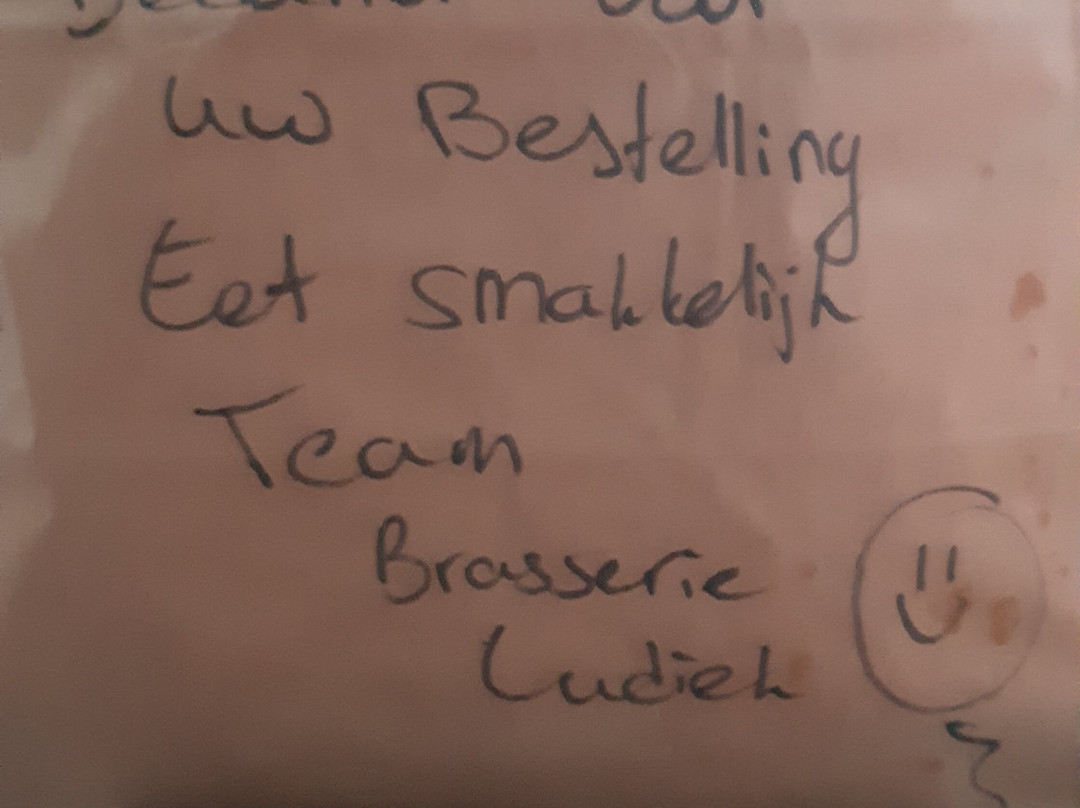 uw Bestelling
Eet smakkelijk
Team
Brasserie
Ludiek